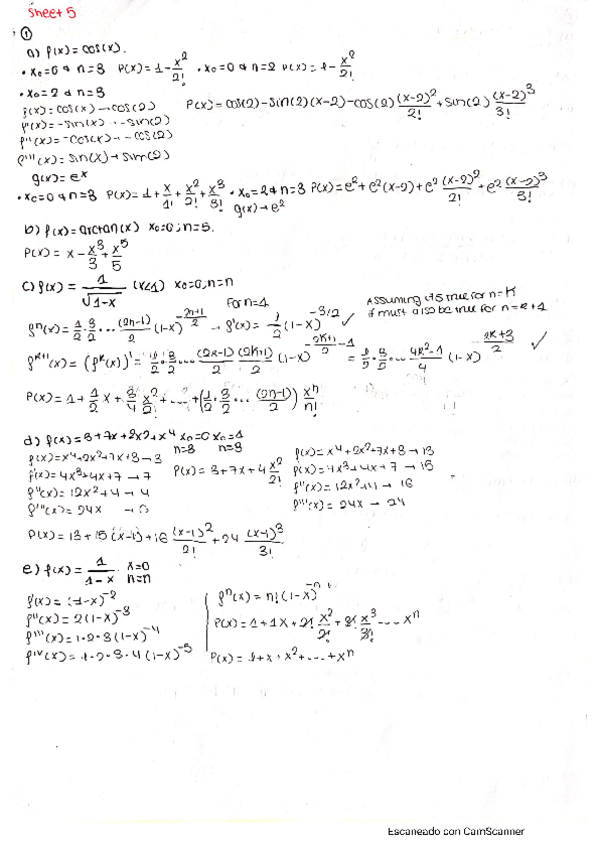 Sheet 5
①
a) f(x) = cos(x).
• x₀=0 ∧ n=3 P(x) = 1 - x²/2! • x₀=0 ∧ n=2 P(x) = 1 - x²/2!
• x₀=2 ∧ n=3
f(x) = cos(x) → cos(2) P(x) = cos(2) - sin(2)(x-2) - cos(2) (x-2)²/2! + sin(2) (x-2)³/3!
f'(x) = -sin(x) → -sin(2)
f''(x) = -cos(x) → -cos(2)
f'''(x) = sin(x) → sin(2)
g(x) = eˣ
• x₀=0 ∧ n=3 P(x) = 1 + x/1! + x²/2! + x³/3! • x₀=2 ∧ n=3 P(x) = e² + e²(x-2) + e² (x-2)²/2! + e² (x-2)³/3!
g(x) → e²
b) f(x) = arctan(x) x₀=0; n=5.
P(x) = x - x³/3 + x⁵/5
c) f(x) = 1/√(1-x) (x<1) x₀=0, n=n
For n=1 Assuming it is true for n=k
it must also be true for n=k+1
fⁿ(x) = 1/2 · 3/2 ... (2n-1)/2 (1-x)^-(2n+1)/2 → f'(x) = 1/2 (1-x)^-3/2 ✓
f^(k+1)(x) = (f^k(x))' = 1/2 · 3/2 ... (2k-1)/2 (2k+1)/2 (1-x)^(-(2k+1)/2 - 1) = 1/2 · 3/2 ... 4k²-1/4 (1-x)^-(2k+3)/2 ✓
P(x) = 1 + 1/2 x + 3/4 x²/2! + ... + (1/2 · 3/2 ... (2n-1)/2) xⁿ/n!
d) f(x) = 3+7x+2x²+x⁴ x₀=0 x₀=1
n=3 n=3
f(x) = x⁴+2x²+7x+3 → 3 f(x) = x⁴+2x²+7x+3 → 13
f'(x) = 4x³+4x+7 → 7 P(x) = 3+7x+4 x²/2! f'(x) = 4x³+4x+7 → 15
f''(x) = 12x²+4 → 4 f''(x) = 12x²+4 → 16
f'''(x) = 24x → 0 f'''(x) = 24x → 24
P(x) = 13 + 15(x-1) + 16 (x-1)²/2! + 24 (x-1)³/3!
e) f(x) = 1/1-x x=0
n=n
f'(x) = (1-x)⁻² fⁿ(x) = n! (1-x)
f''(x) = 2(1-x)⁻³ P(x) = 1 + 1x + 2! x²/2! + 3! x³/3! ... xⁿ
f'''(x) = 1·2·3(1-x)⁻⁴
f'ᵛ(x) = 1·2·3·4(1-x)⁻⁵ P(x) = 1 + x + x² + ... + xⁿ
Escaneado con CamScanner